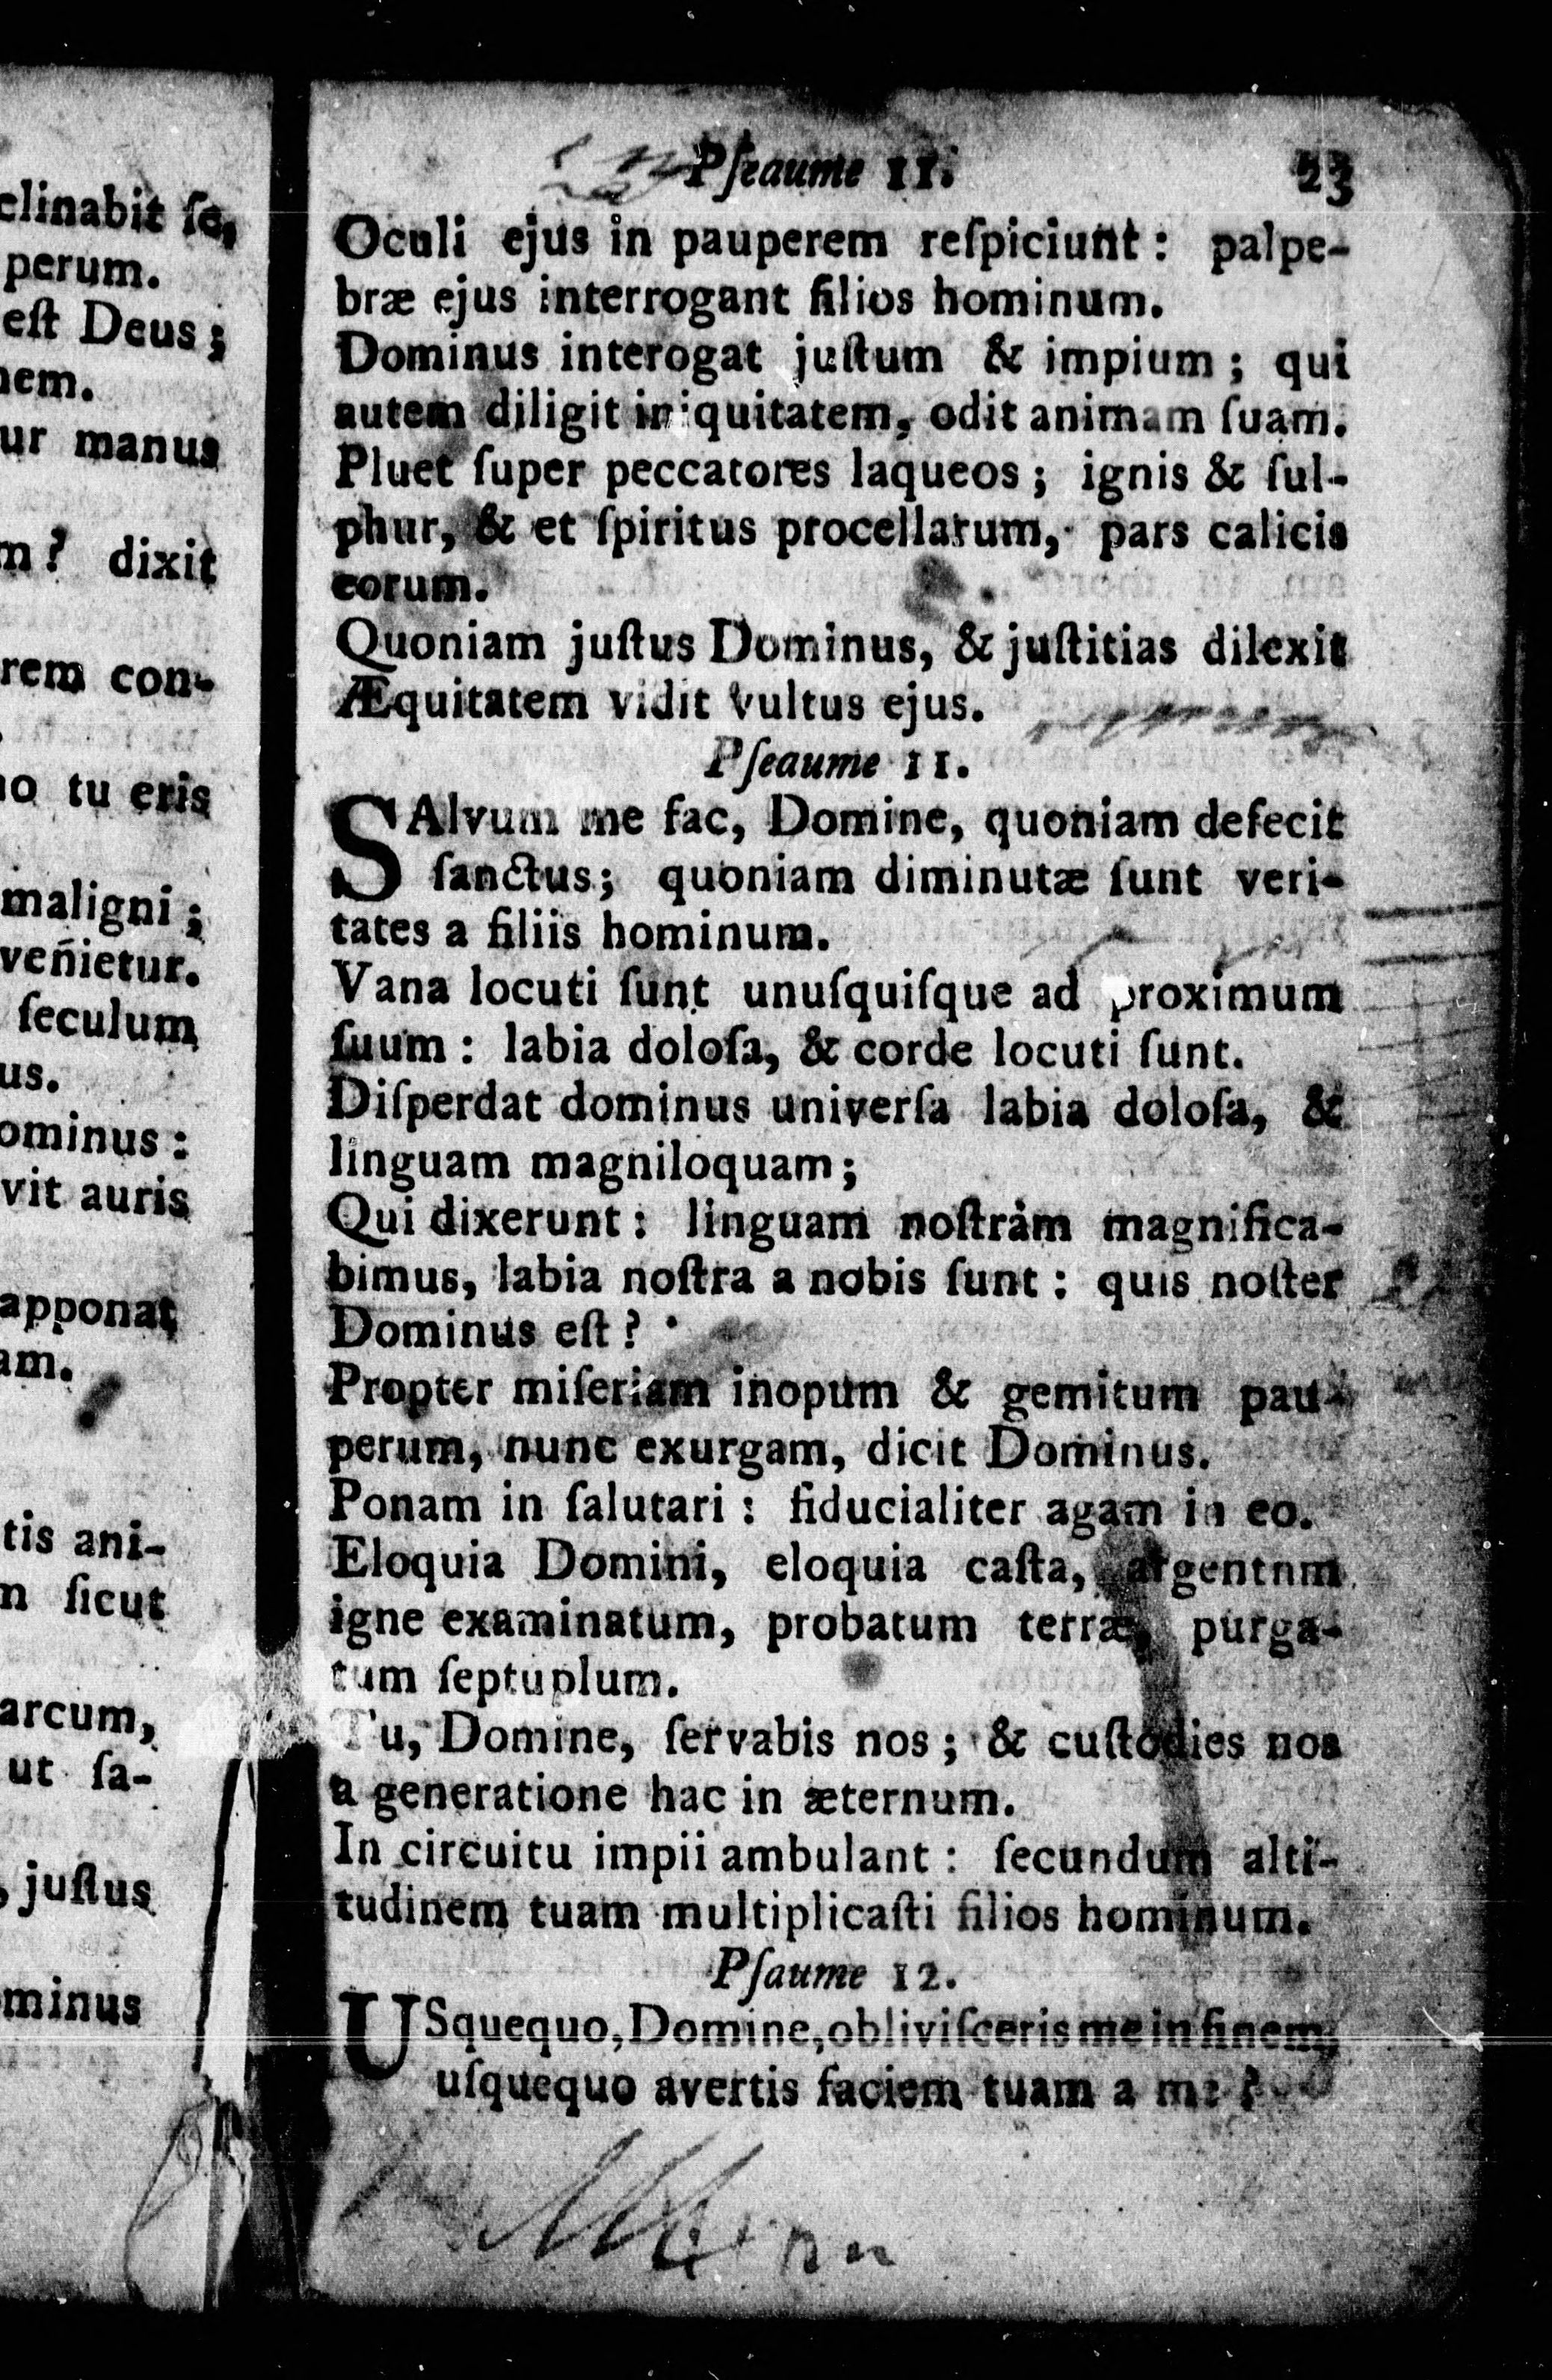 clinabit ſe,
perum.
eſt Deus ;
nem.
ur manus
m ? dixit
rem con-
no tu eris
maligni ;
veñietur.
ſeculum
us.
ominus :
vit auris
apponat
am.
tis ani-
m ſicut
arcum,
ut ſa-
, juſtus
minus
Pſeaume 11. 23
Oculi ejus in pauperem reſpiciunt : palpe-
bræ ejus interrogant filios hominum.
Dominus interogat juſtum & impium ; qui
autem diligit iniquitatem, odit animam ſuam.
Pluet ſuper peccatores laqueos ; ignis & ſul-
phur, & et ſpiritus procellarum, pars calicis
eorum.
Quoniam juſtus Dominus, & juſtitias dilexit
Æquitatem vidit vultus ejus.
Pſeaume 11.
SAlvum me fac, Domine, quoniam defecit
ſanctus; quoniam diminutæ ſunt veri-
tates a filiis hominum.
Vana locuti ſunt unuſquiſque ad proximum
ſuum : labia doloſa, & corde locuti ſunt.
Diſperdat dominus univerſa labia doloſa, &
linguam magniloquam ;
Qui dixerunt : linguam noſtràm magnifica-
bimus, labia noſtra a nobis ſunt : quis noſter
Dominus eſt ?
Propter miſeriam inopum & gemitum pau-
perum, nunc exurgam, dicit Dominus.
Ponam in ſalutari : fiducialiter agam in eo.
Eloquia Domini, eloquia caſta, argentnm
igne examinatum, probatum terræ, purga-
tum ſeptuplum.
Tu, Domine, ſervabis nos ; & cuſtodies nos
a generatione hac in æternum.
In circuitu impii ambulant : ſecundum alti-
tudinem tuam multiplicaſti filios hominum.
Pſaume 12.
USquequo, Domine, obliviſceris me in finem,
uſquequo avertis faciem tuam a me ?